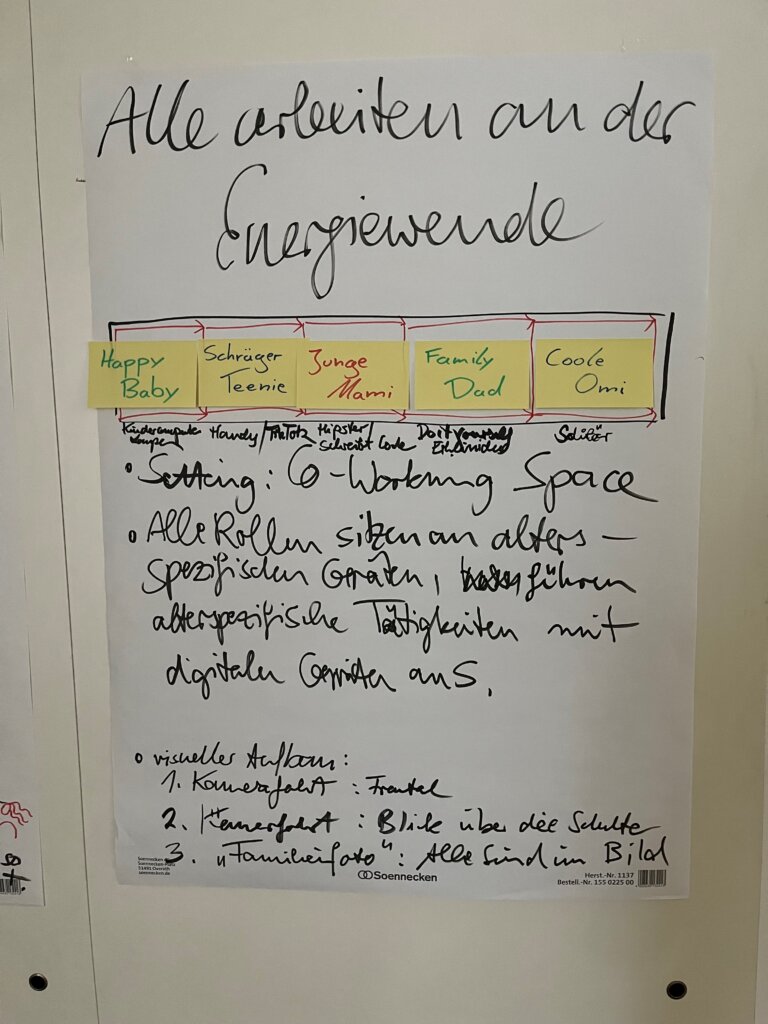 Alle arbeiten an der
Energiewende
Happy
Baby
Schräger
Teenie
Junge
Mami
Family
Dad
Coole
Omi
Kindercomputer
Handy/TikTok
Hipster/
schreibt Code
Do it yourself
Solitär
• Setting: Co-Working Space
• Alle Rollen sitzen an alters-
spezifischen Geräten, führen
alterspezifische Tätigkeiten mit
digitalen Geräten aus.
• visueller Aufbau:
1. Kamerafahrt: Frontal
2. Kamerfahrt: Blick über die Schulter
3. "Familienfoto": Alle sind im Bild
Soennecken
51491 Overath
soennecken.de
Soennecken
Herst.-Nr. 1137
Bestell.-Nr. 155 0225 00